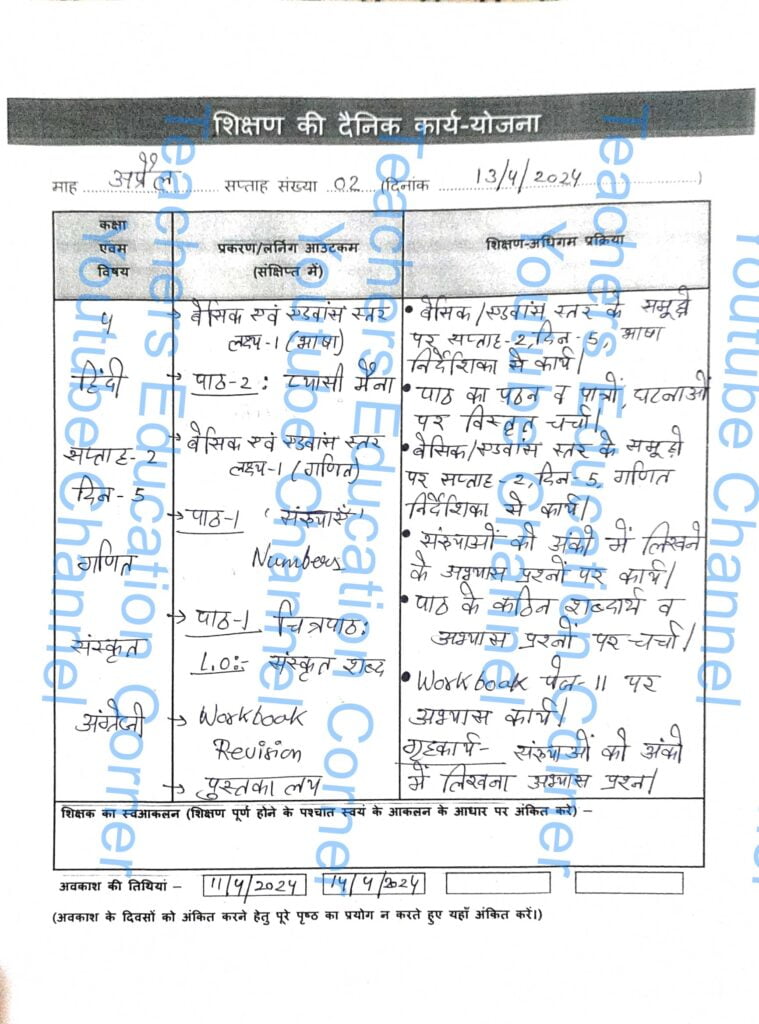 शिक्षण की दैनिक कार्य-योजना
माह अप्रैल सप्ताह संख्या 02 (दिनांक 13/4/2024)
कक्षा
एवम
विषय
प्रकरण/लर्निंग आउटकम
(संक्षिप्त में)
शिक्षण-अधिगम प्रक्रिया
4
हिंदी
सप्ताह-2
दिन-5
गणित
संस्कृत
अंग्रेजी
→ बेसिक एवं एडवांस स्तर
लक्ष्य-1 (भाषा)
→ पाठ-2: प्यासी मैना
→ बेसिक एवं एडवांस स्तर
लक्ष्य-1 (गणित)
→ पाठ-1 'संख्याएँ'
Numbers
→ पाठ-1 चित्रपाठ:
L.O:- संस्कृत शब्द
→ Workbook
Revision
→ पुस्तकालय
• बेसिक/एडवांस स्तर के समूहो
पर सप्ताह-2, दिन-5, भाषा
निर्देशिका से कार्य।
• पाठ का पठन व पात्रों, घटनाओं
पर विस्तृत चर्चा।
• बेसिक/एडवांस स्तर के समूहो
पर सप्ताह-2, दिन-5, गणित
निर्देशिका से कार्य।
• संख्याओं को अंको में लिखने
के अभ्यास प्रश्नों पर कार्य।
• पाठ के कठिन शब्दार्थ व
अभ्यास प्रश्नों पर चर्चा।
• Workbook पेज-11 पर
अभ्यास कार्य।
गृहकार्य- संख्याओं को अंको
में लिखना अभ्यास प्रश्न।
शिक्षक का स्वआकलन (शिक्षण पूर्ण होने के पश्चात स्वयं के आकलन के आधार पर अंकित करे) –
अवकाश की तिथियां – 11/4/2024 14/4/2024
(अवकाश के दिवसों को अंकित करने हेतु पूरे पृष्ठ का प्रयोग न करते हुए यहाँ अंकित करें।)
Teachers Education Corner
Youtube Channel
Teachers Education Corner
Youtube Channel
Teachers Education Corner
Youtube Channel